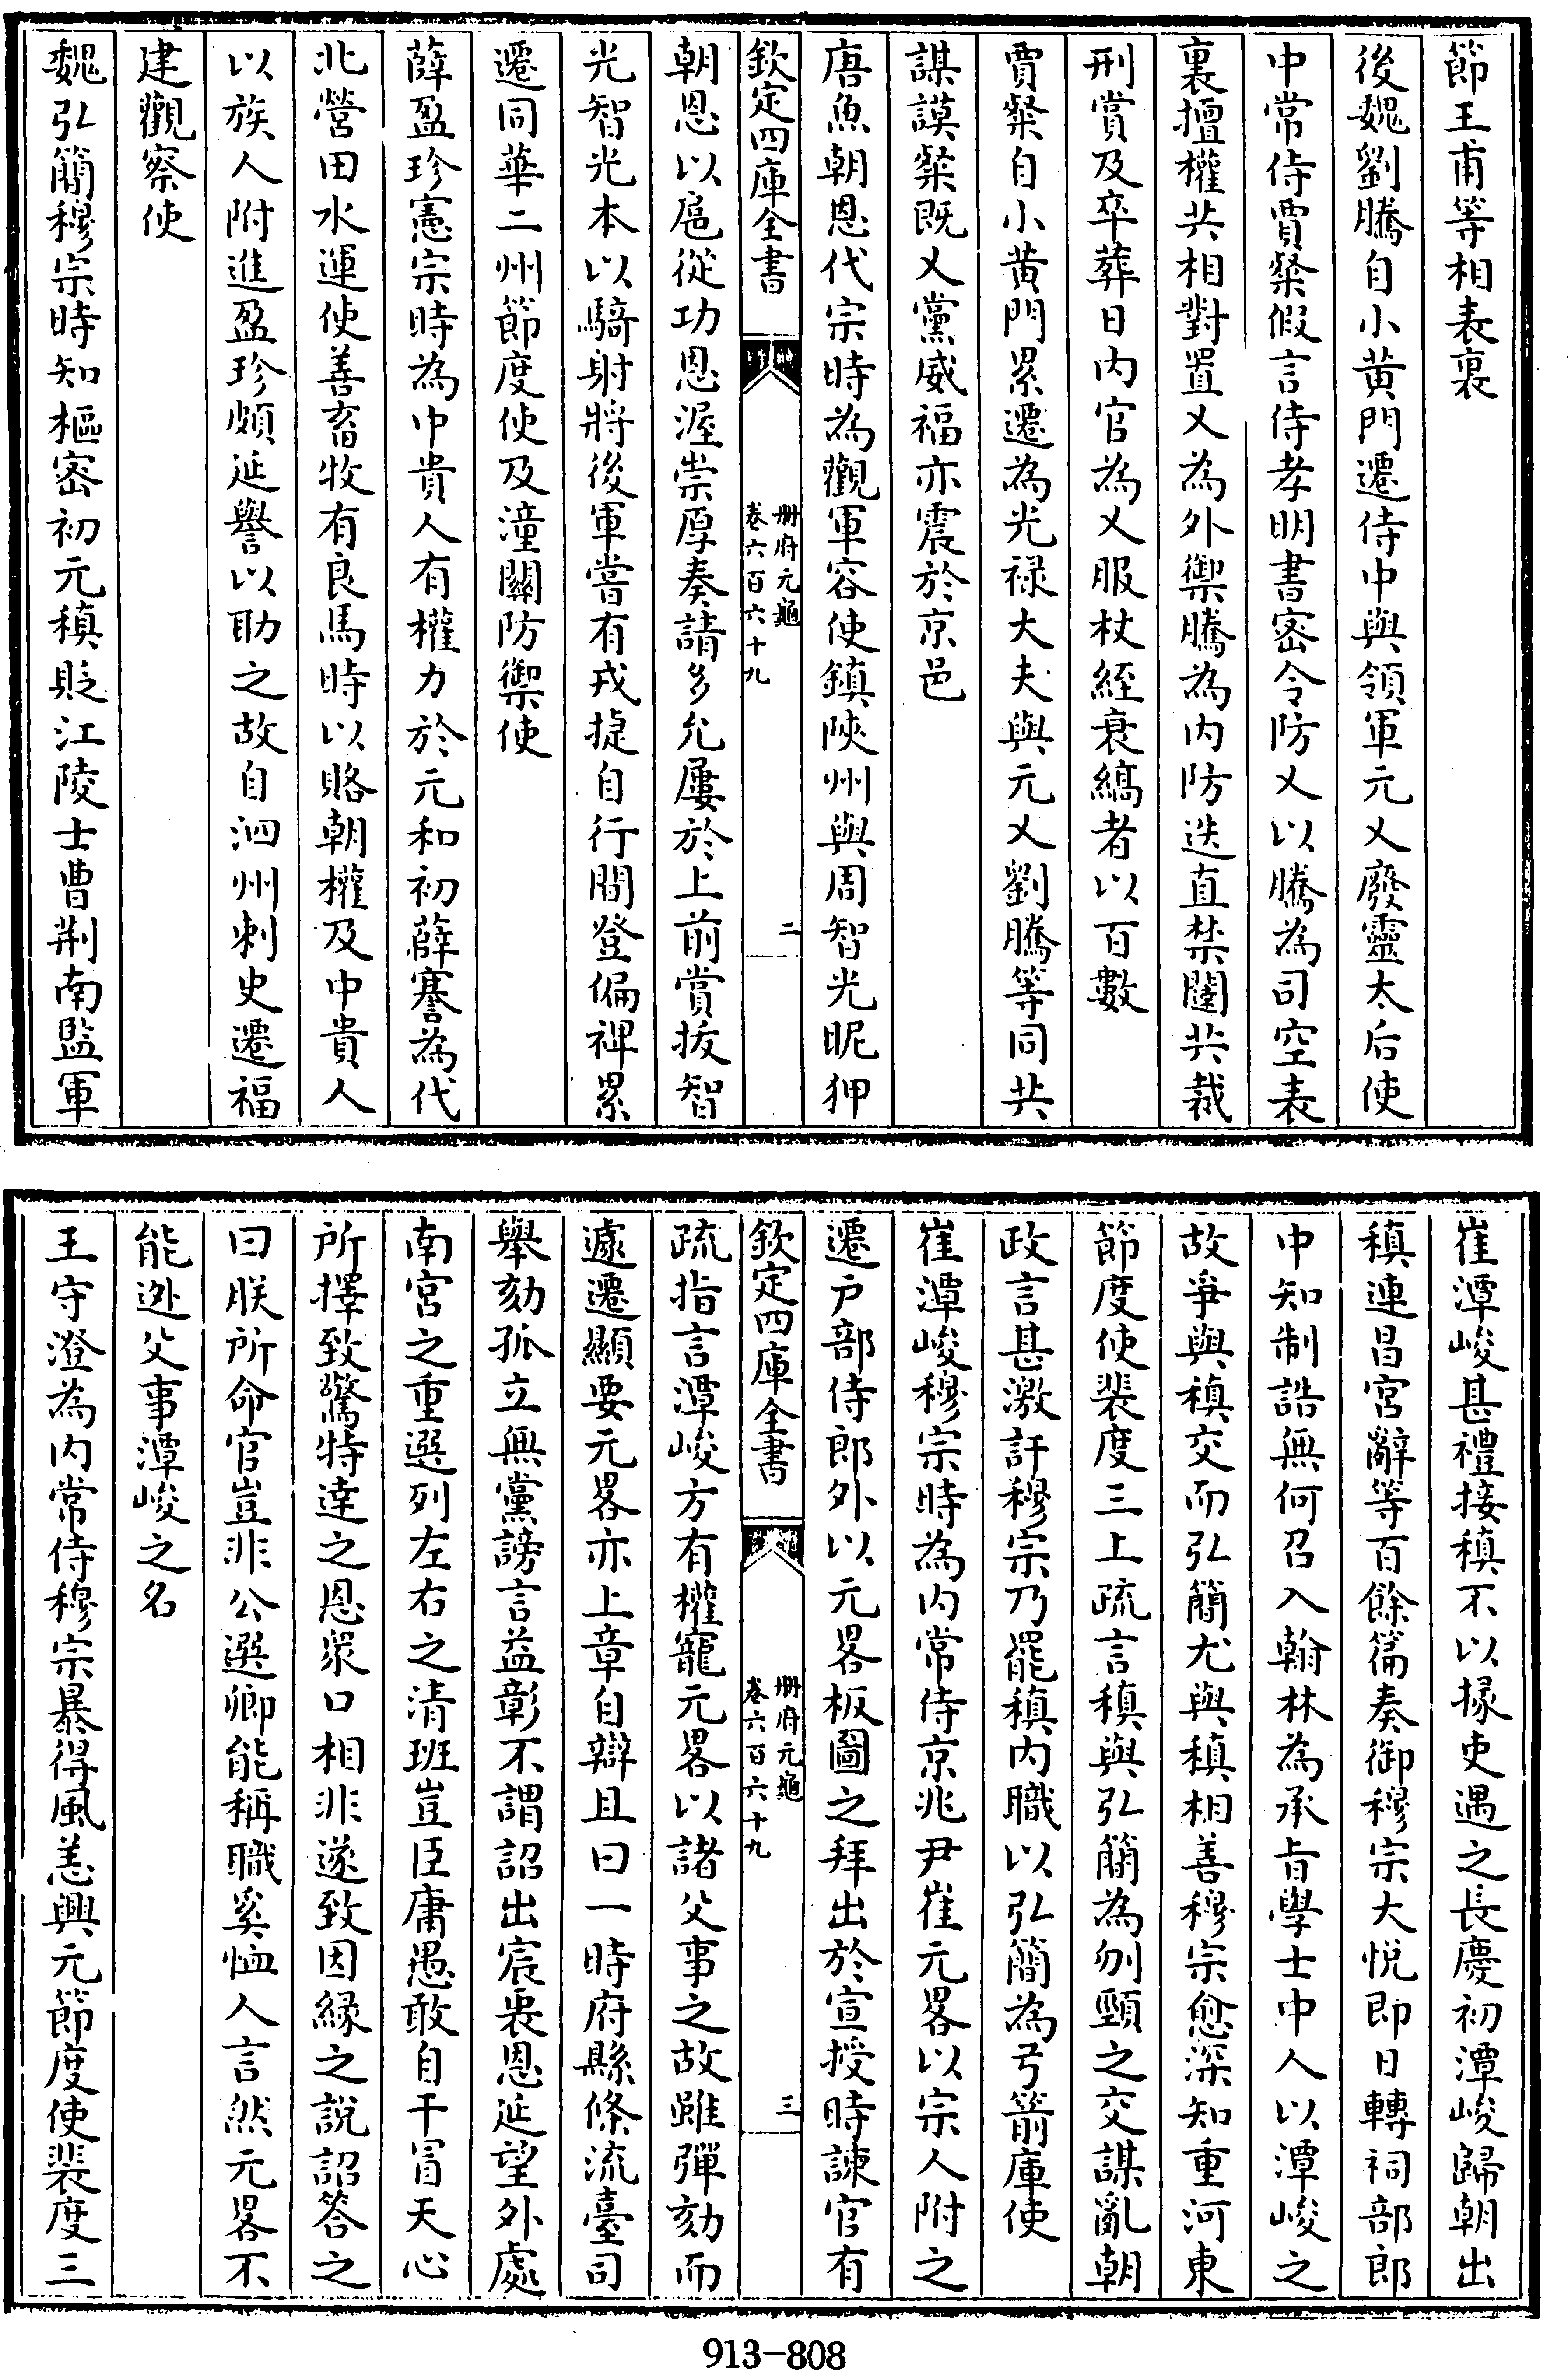 節王甫等相表裏
後魏劉騰自小黄門遷侍中與領軍元乂廢靈太后使
中常侍賈粲假言侍孝明書密令防乂以騰為司空表
裏擅權共相對置乂為外禦騰為内防迭直禁闥共裁
刑賞及卒葬日内官為乂服杖絰衰縞者以百數
賈粲自小黄門累遷為光禄大夫與元乂劉騰等同共
謀謨粲既乂黨威福亦震於京邑
唐魚朝恩代宗時為觀軍容使鎮陜州與周智光昵狎
欽定四庫全書
冊府元龜
卷六百六十九
二
朝恩以扈從功恩渥崇厚奏請多允屢於上前賞拔智
光智光本以騎射將後軍嘗有戎捷自行間登偏禆累
遷同華二州節度使及潼關防禦使
薛盈珍憲宗時為中貴人有權力於元和初薛謇為代
北營田水運使善畜牧有良馬時以賂朝權及中貴人
以族人附進盈珍頗延譽以助之故自泗州刺史遷福
建觀察使
魏弘簡穆宗時知樞密初元稹貶江陵士曹荆南監軍
崔潭峻甚禮接稹不以掾吏遇之長慶初潭峻歸朝出
稹連昌宮辭等百餘篇奏御穆宗大悦即日轉祠部郎
中知制誥無何召入翰林為承旨學士中人以潭峻之
故爭與稹交而弘簡尤與稹相善穆宗愈深知重河東
節度使裴度三上疏言稹與弘簡為刎頸之交謀亂朝
政言甚激訐穆宗乃罷稹内職以弘簡為弓箭庫使
崔潭峻穆宗時為内常侍京兆尹崔元畧以宗人附之
遷户部侍郎外以元畧板圖之拜出於宣授時諫官有
欽定四庫全書
冊府元龜
卷六百六十九
三
疏指言潭峻方有權寵元畧以諸父事之故雖彈劾而
遽遷顯要元畧亦上章自辯且曰一時府縣條流臺司
舉劾孤立無黨謗言益彰不謂詔出宸衷恩延望外處
南宮之重選列左右之清班豈臣庸愚敢自干冒天心
所擇致驚特達之恩衆口相非遂致因緣之說詔答之
曰朕所命官豈非公選卿能稱職奚恤人言然元畧不
能逃父事潭峻之名
王守澄為内常侍穆宗暴得風恙興元節度使裴度三
913-808